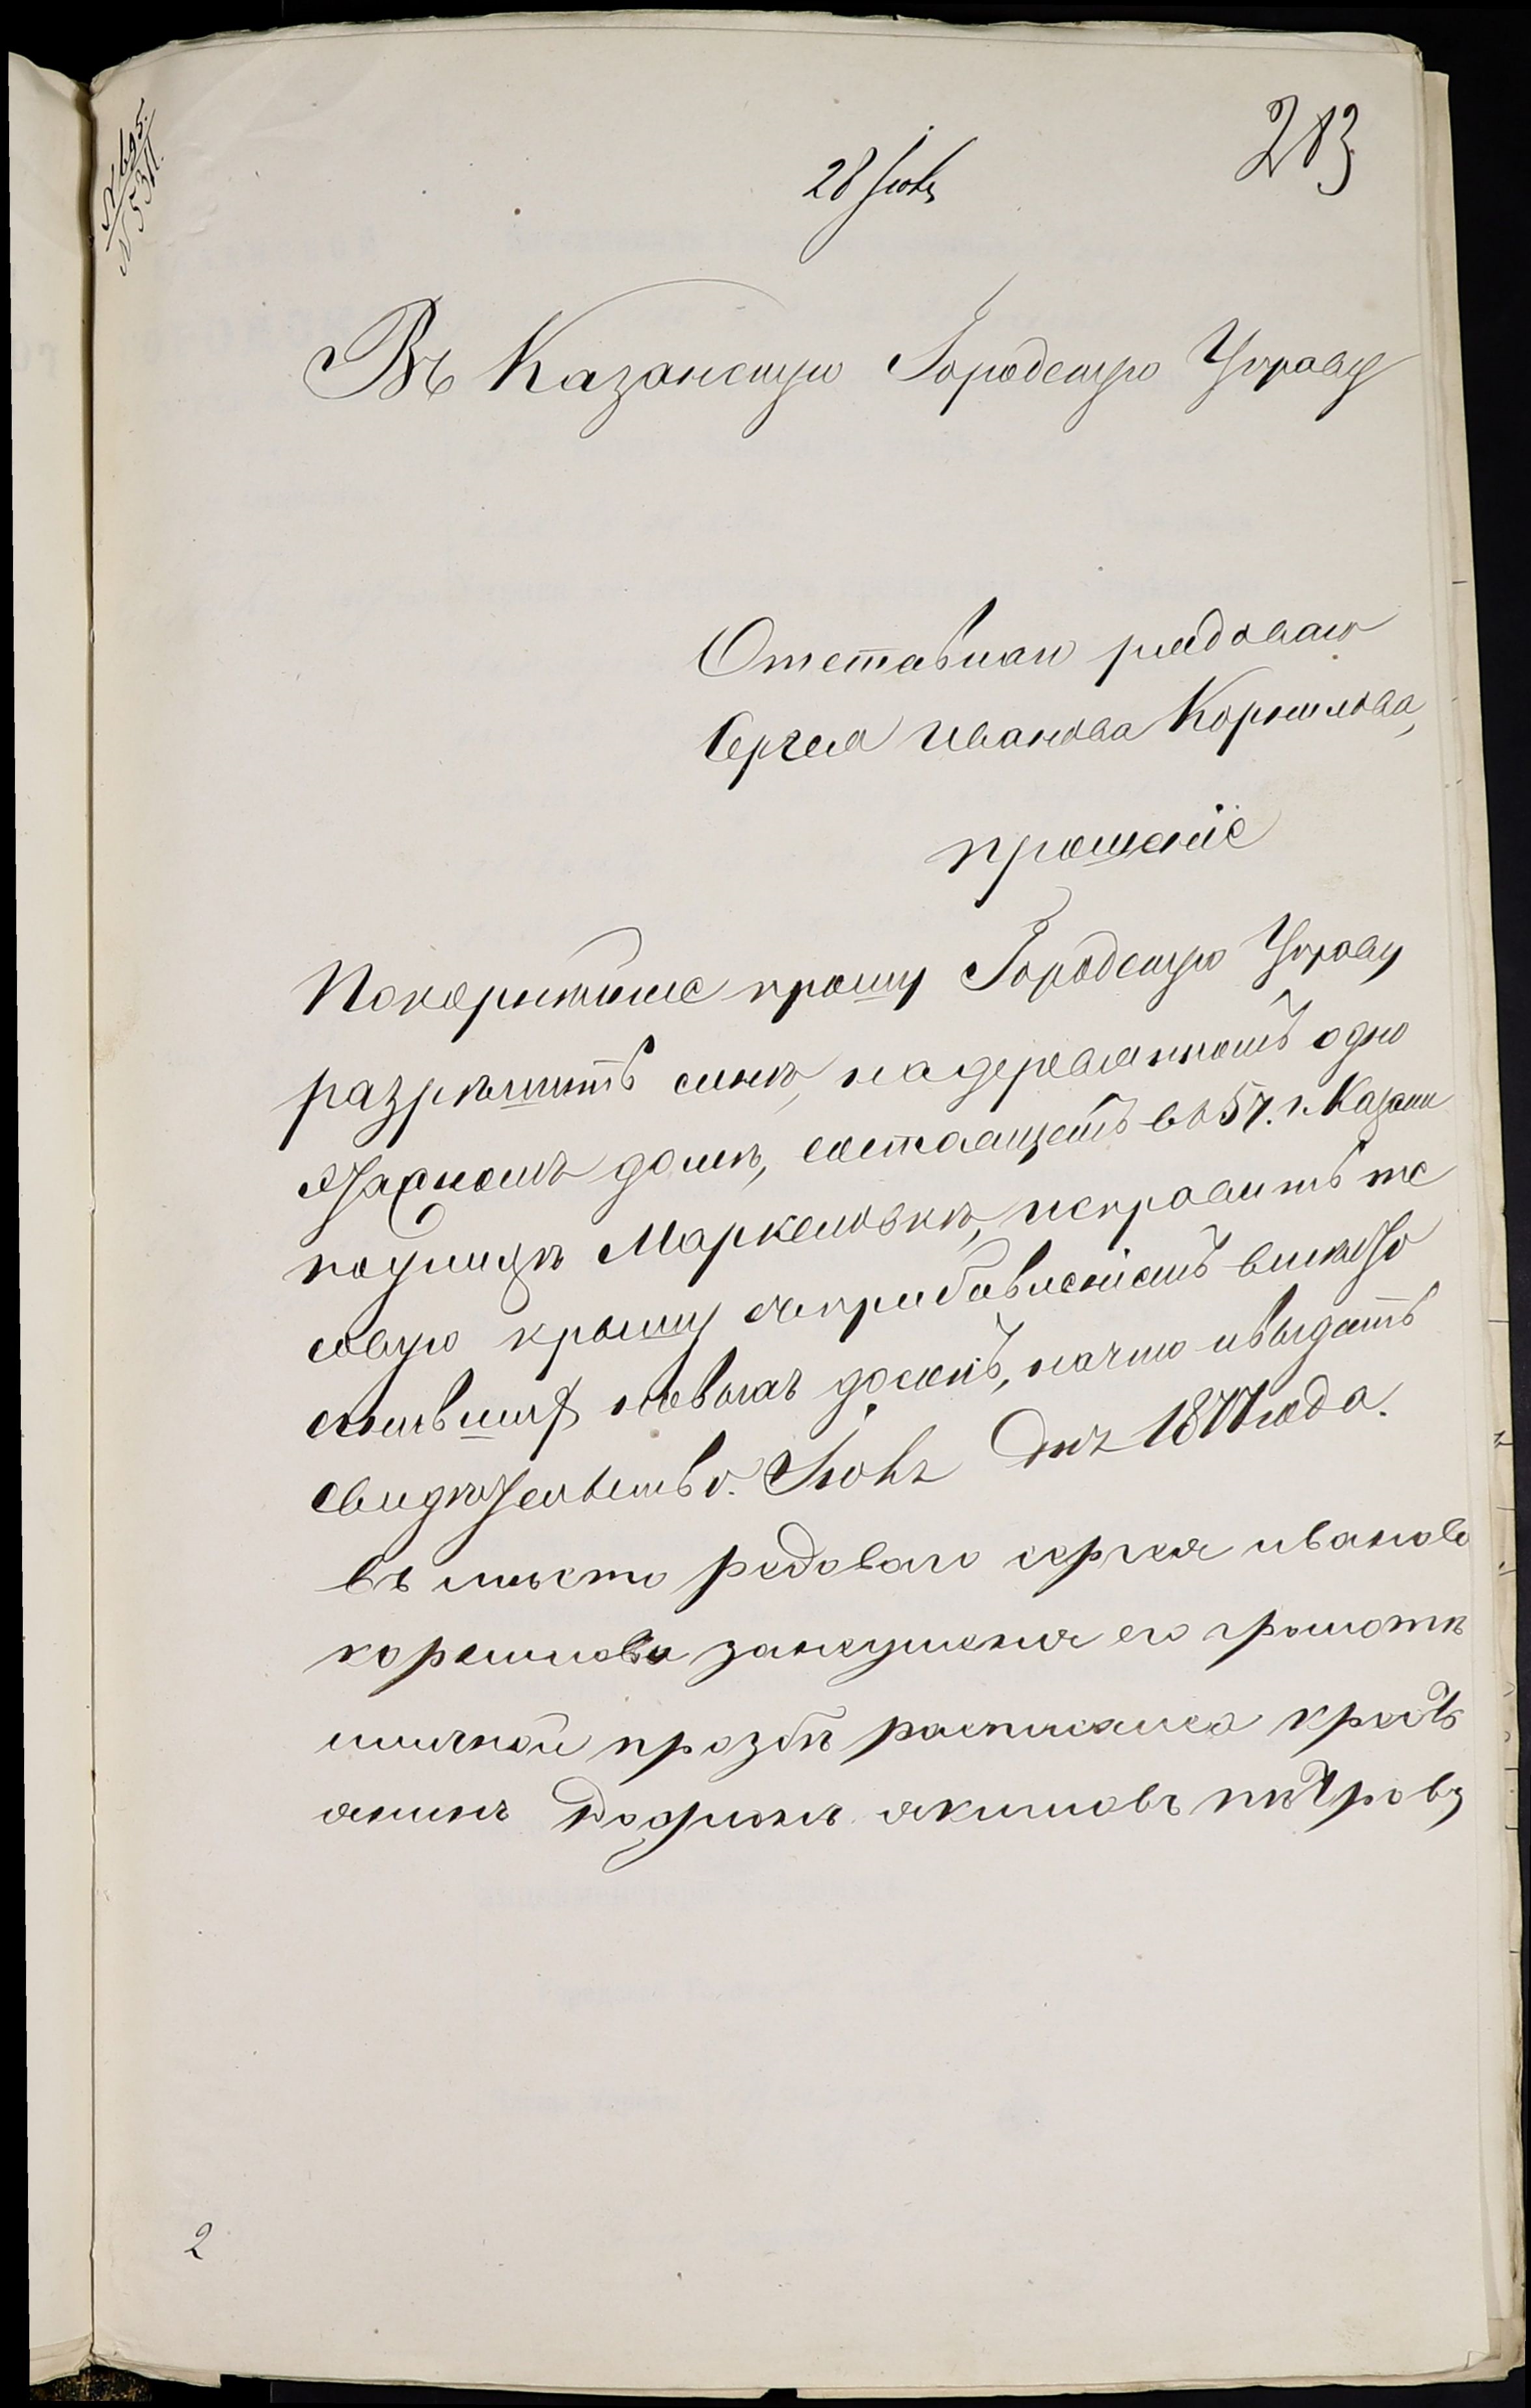 283
№ 695.
№ 5311.
28 Іюня
Въ Казанскую Городскую Управу
Отставнаго рядоваго
Сергея Иванова Корнилова,
прошеніе
Покорнѣйше прошу Городскую Управу
разрѣшить мнѣ, на деревянномъ одно
этажномъ домѣ, состоящемъ в 5 ч. г. Казани
по улицѣ Маркеловкѣ, исправить те
совую крышу съ прибавленіемъ вместо
сгнившихъ новыхъ досокъ, на что и выдать
свидѣтельство. Іюня дня 1877 года.
въ мѣсто редоваго сергея иванова
за неуменія его грамотѣ
по личной прозбѣ росписался крестъ
янинъ якимовъ пѣтровъ
2